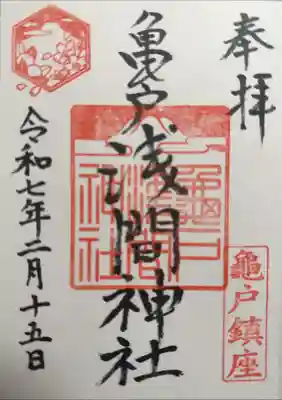 奉拝
亀戸浅間神社
令和七年二月十五日
龜戸鎮座